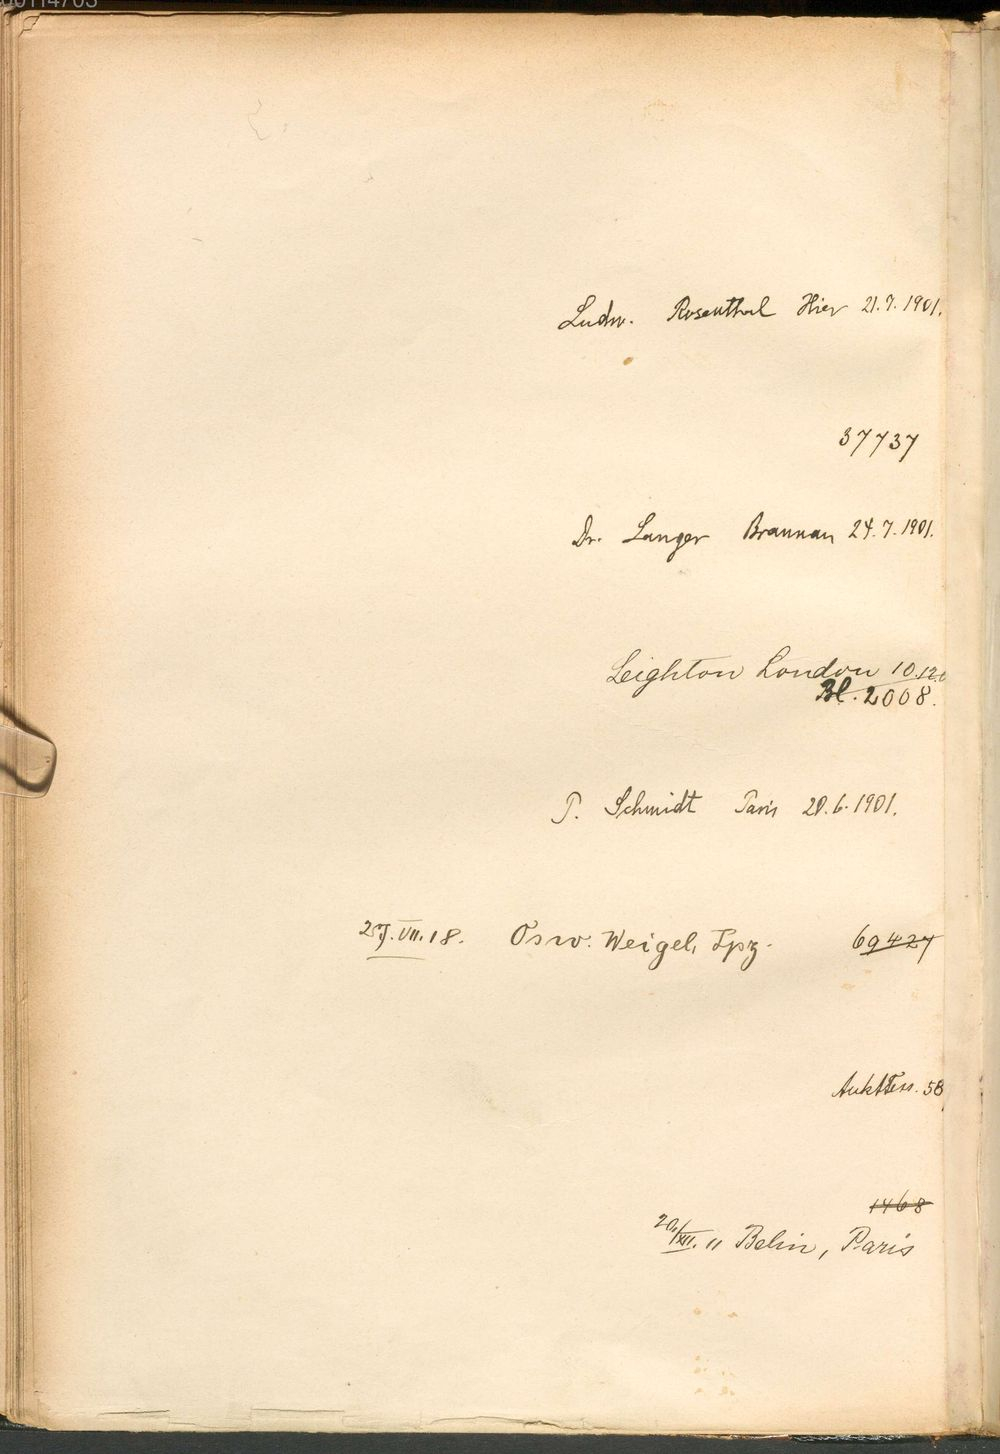 Ludw. Rosenthal Hier 21.7.1901.
37737
Dr. Langer Braunau 24.7.1901.
Leighton London 10.12.
Bl. 2008.
P. Schmidt Paris 20.6.1901.
27.VII.18. Osw. Weigel, Lpz. 69427
58
1468
20/XII. 11 Belin, Paris